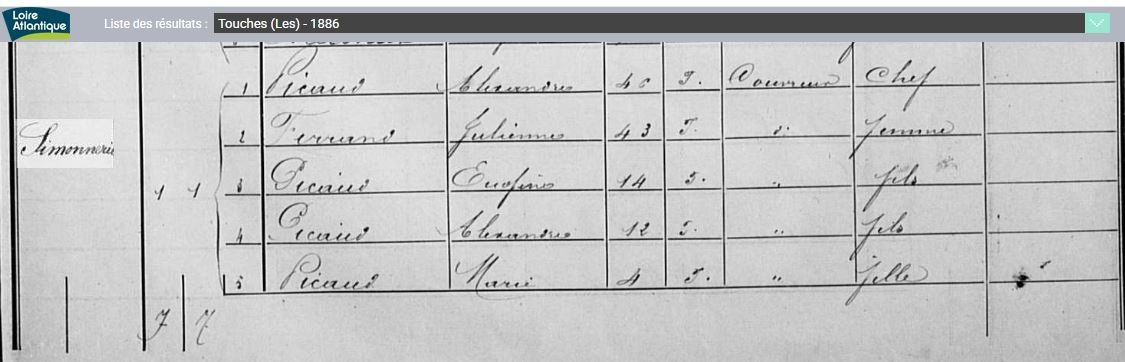 Loire
Atlantique
Liste des résultats : Touches (Les) - 1886
1 Picaud Alexandre 46 F. Couvreur Chef
Simonnerie
2 Ferrand Julienne 43 F. d: femme
1 1 3 Picaud 14 F. " fils
4 Picaud Alexandre 12 F. " fils
5 Picaud Marie 4 F. " fille
7 7